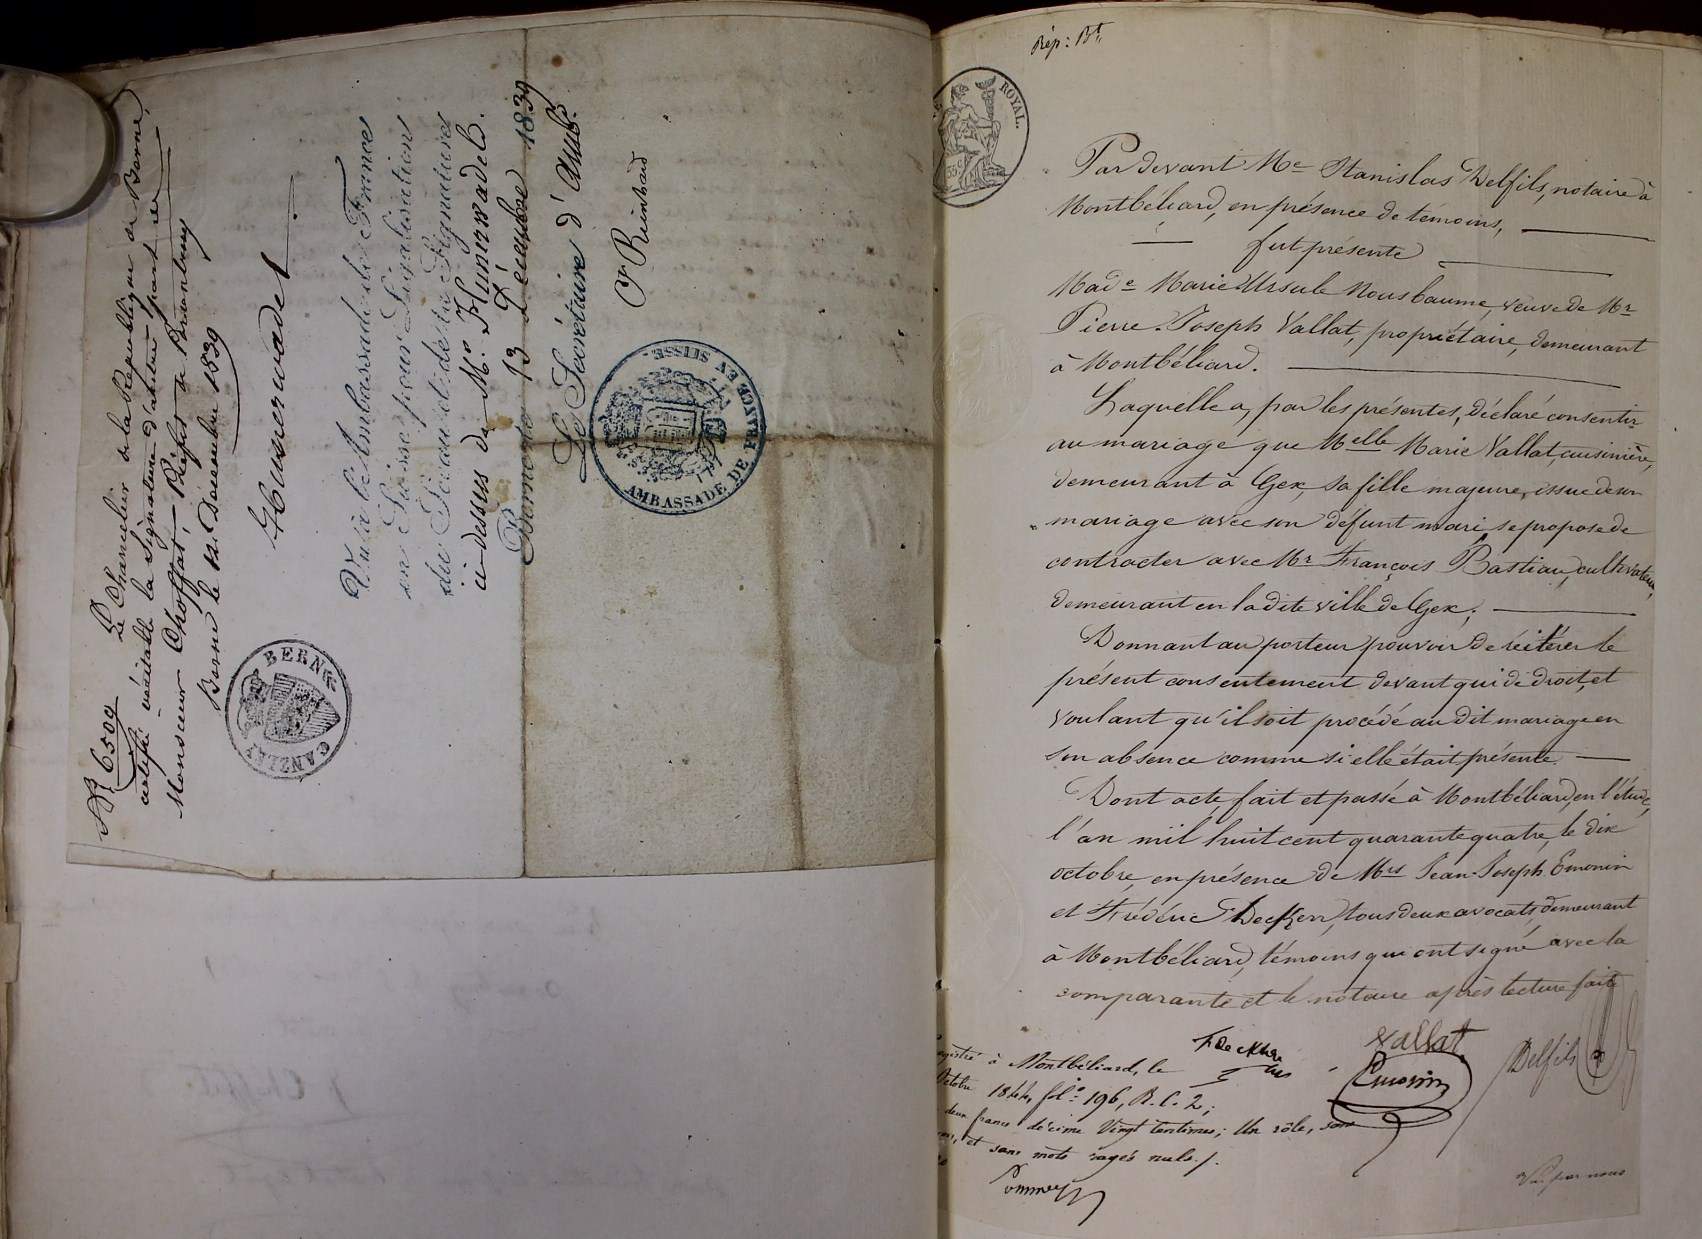 № 6509 Le Chancelier de la République de Berne,
certifie véritable la Signature d'autre part de
Monsieur Choffat, Préfet de Porrentruy
Berne le 12. Décembre 1839
Hunerwadel
BERN
CANZLEY
Vu à l'Ambassade de France
en Suisse pour Légalisation
du Sceau et de la Signature
ci-dessus de Mr. Hunerwadel.
Berne le 13 Décembre 1839
Le Secrétaire d'Amb.
Cr Reinhard
AMBASSADE DE FRANCE EN SUISSE
Rép: Bt.
ROYAL.
35c
Par devant Me Stanislas Delfils, notaire à
Montbéliard, en présence de témoins,
fut présente
Made Marie Ursule Nousbaume, veuve de Mr
Pierre-Joseph Vallat, propriétaire, demeurant
à Montbéliard.
Laquelle a, par les présentes, déclaré consentir
au mariage que Melle Marie Vallat, cuisinière,
demeurant à Gex, sa fille majeure, issue de son
mariage avec son défunt mari, se propose de
contracter avec Mr François Bastian, cultivateur,
demeurant en la dite ville de Gex;
Donnant au porteur pouvoir de réitérer le
présent consentement devant qui de droit, et
voulant qu'il soit procédé au dit mariage en
son absence comme si elle était présente.
Dont acte, fait et passé à Montbéliard, en l'étude,
l'an mil huit cent quarante quatre, le dix
octobre, en présence de Mrs Jean-Joseph Emonin
et Frédéric Deckherr, tous deux avocats, demeurant
à Montbéliard, témoins qui ont signé avec la
comparante et le notaire après lecture faite
F Deckherr
Vallat
Emonin
Delfils
à Montbéliard, le
Octobre 1844, fol. 196, R. C. 2;
deux francs décime Vingt Centimes; Un rôle, sans
et sans mots rayés nuls./.
Vu par nous